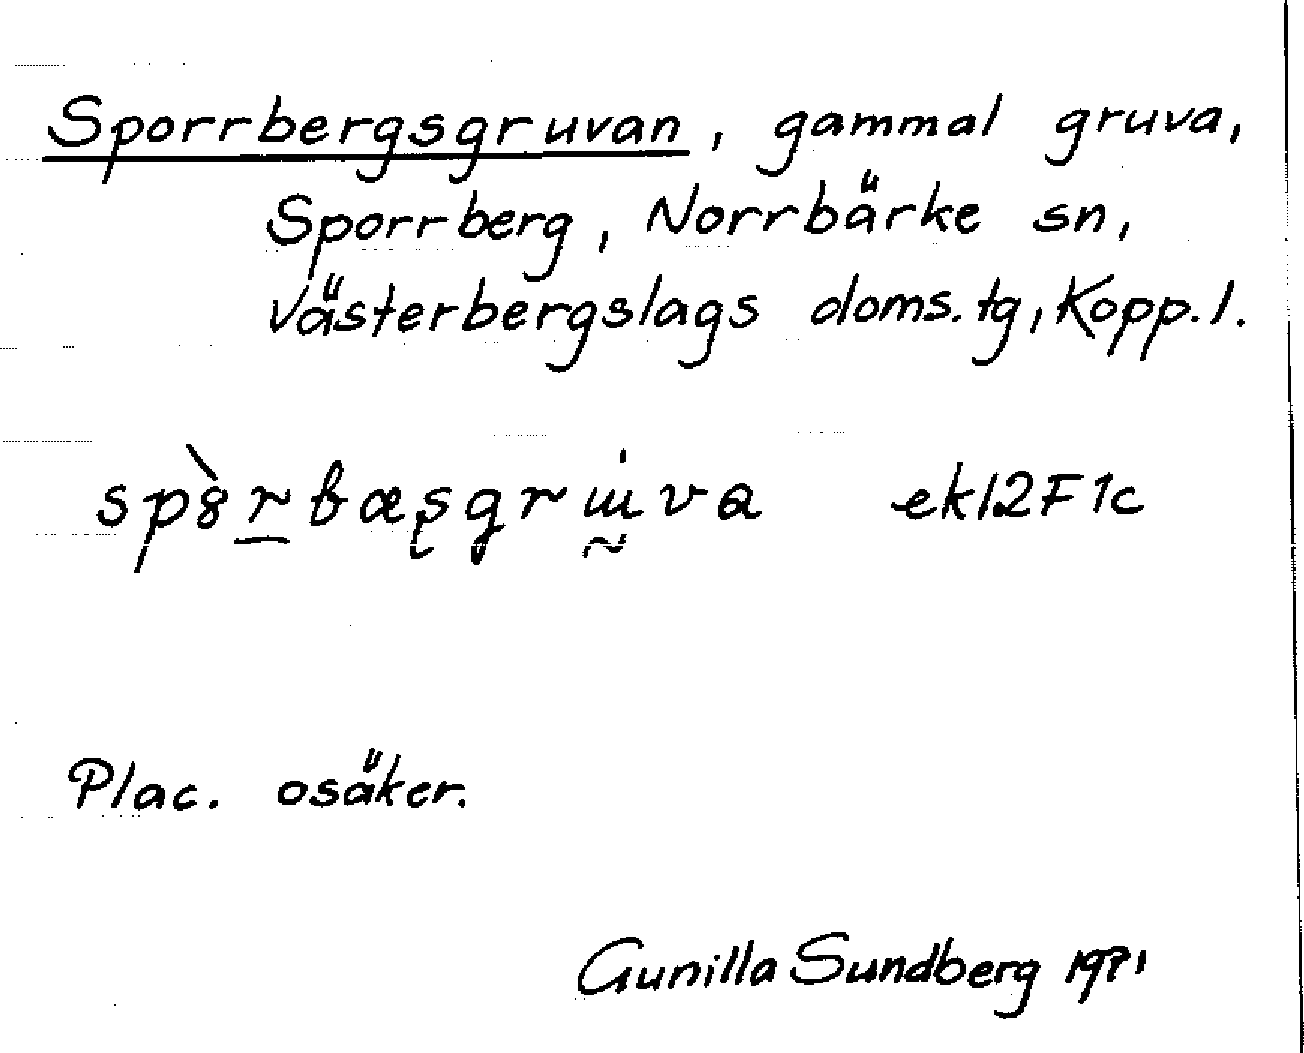 Sporrbergsgruvan, gammal gruva,
Sporrberg, Norrbärke sn,
Västerbergslags doms.tg, Kopp. l.
ek12F1c
Plac. osäker.
Gunilla Sundberg 1971